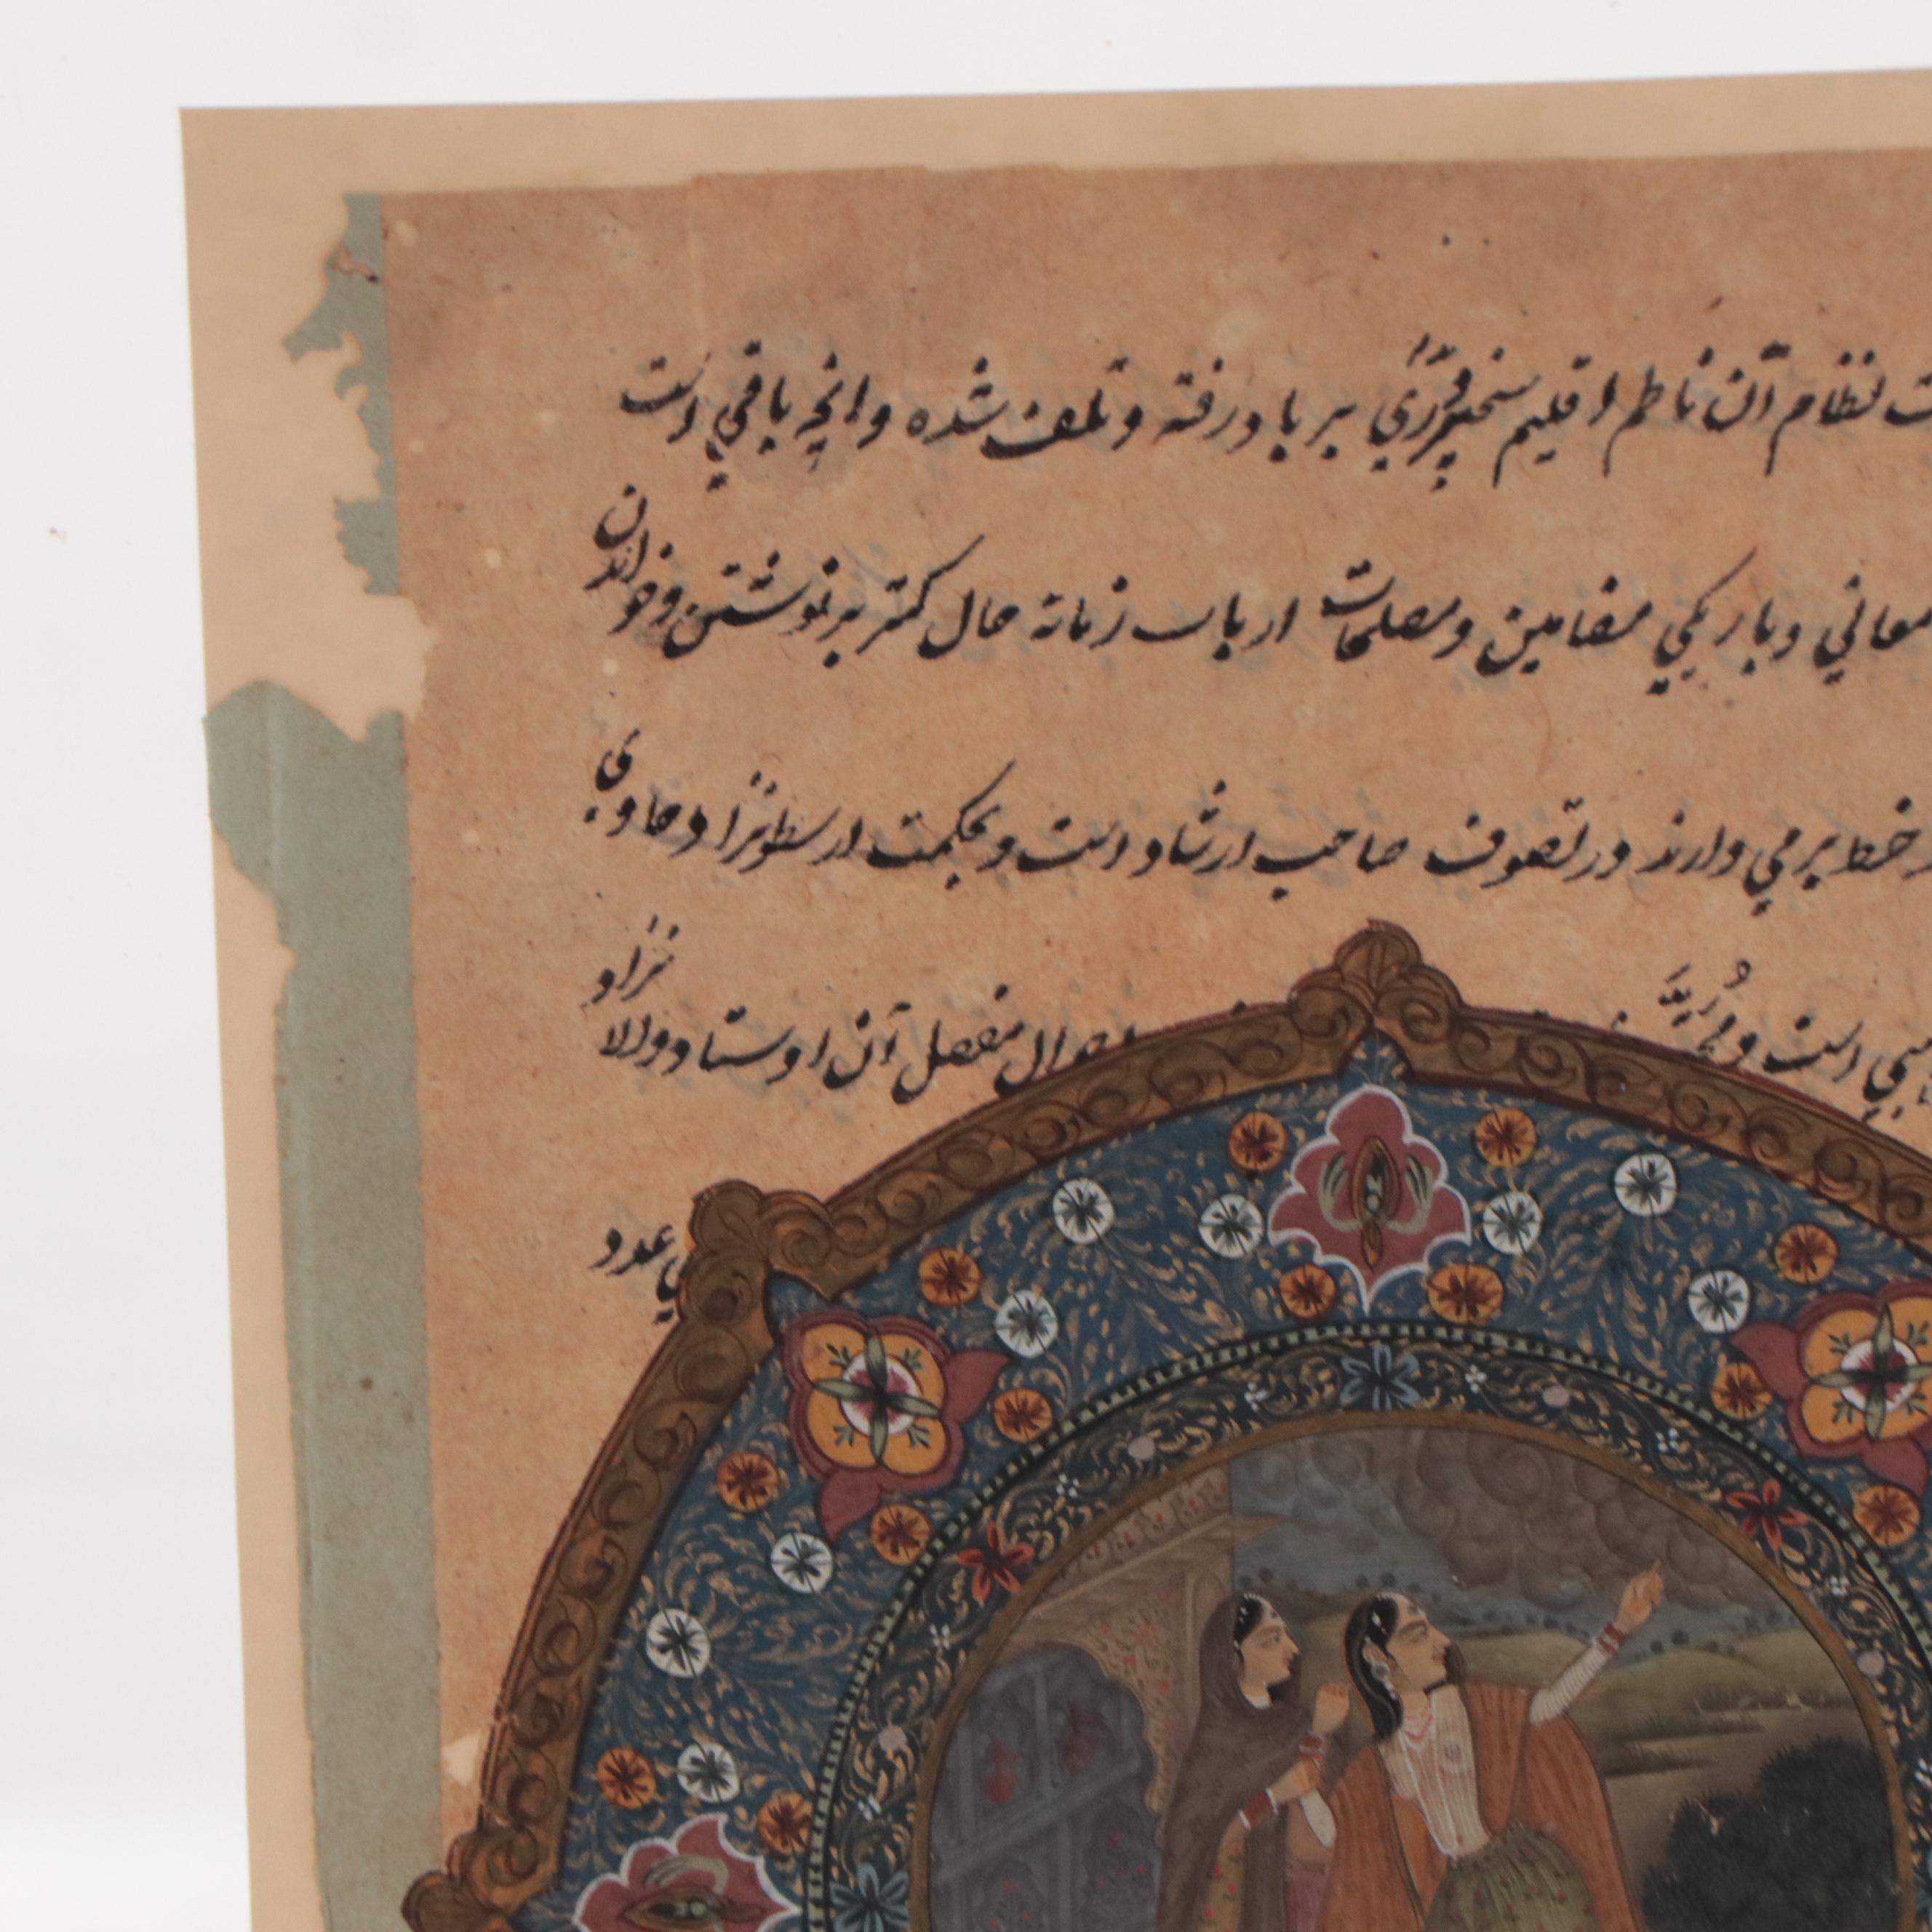 نظام آن ناظم اقلیم سخن‌پروري بر باد رفته و تلف شده و انچه باقي است
معاني و باریکي مضامین و مصلحات ارباب زمانه حال کمتر به نوشتن و خواندن
خط بر مي دارند در تصوف صاحب ارشاد است و بحکمت ارسطو نژاد حاوي
است و احوال مفصل آن اوستاد والا نژاد
عدد